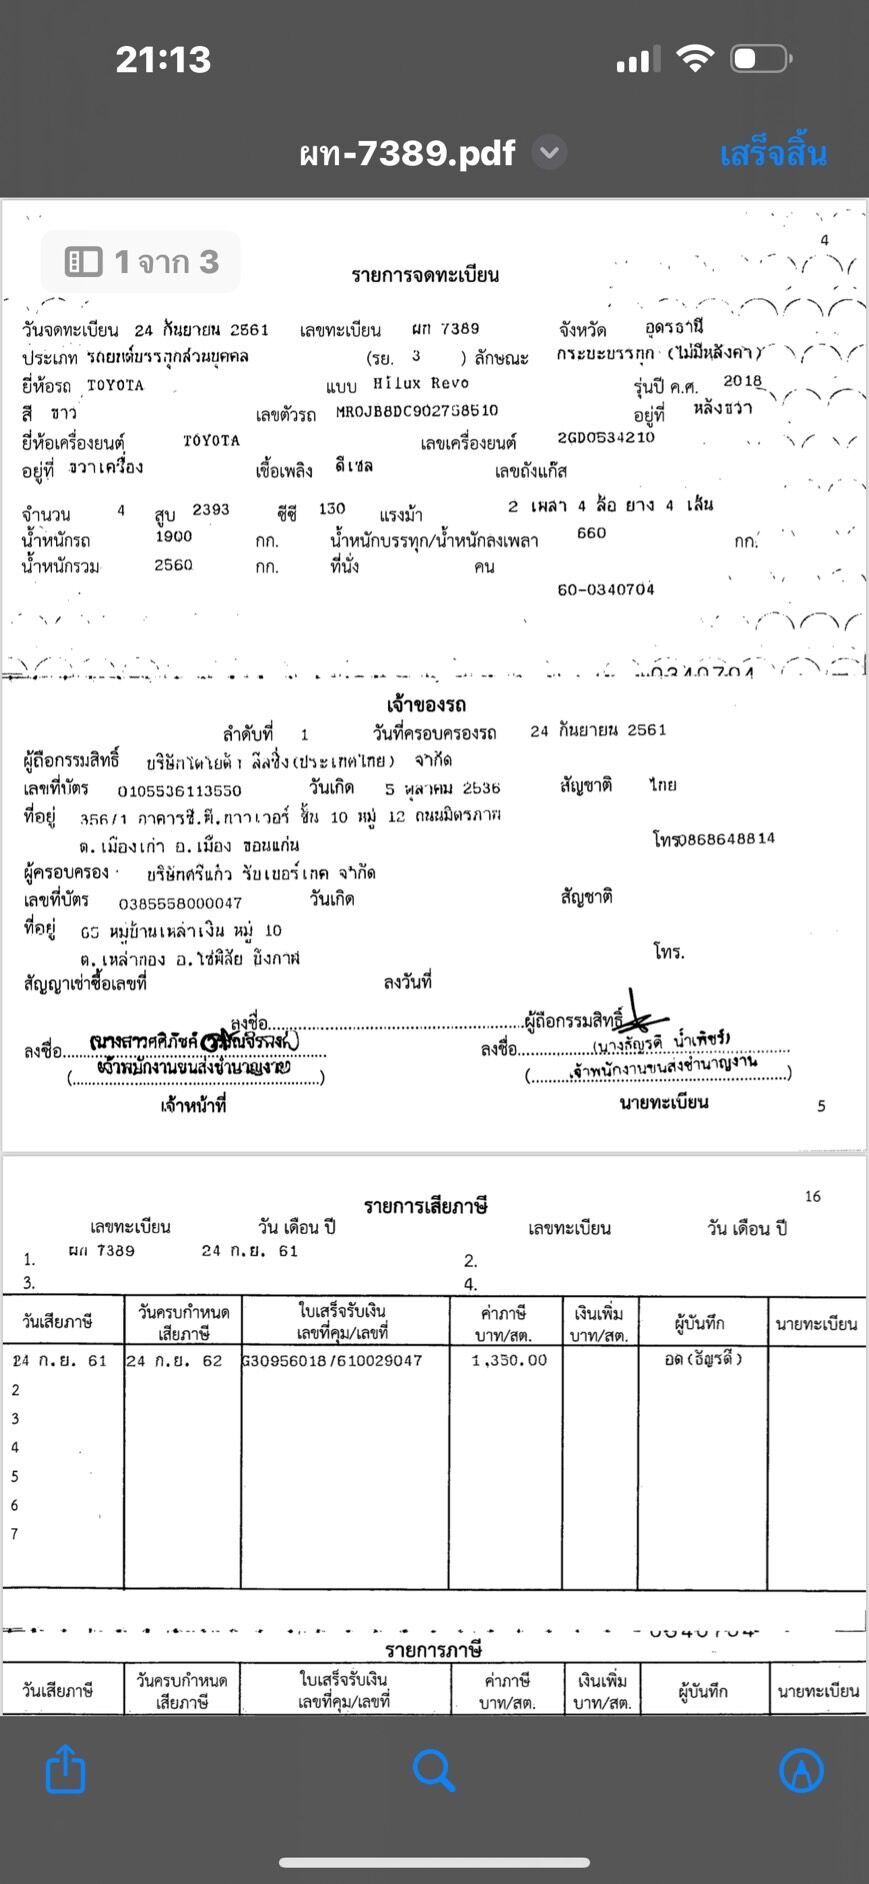 21:13
ผท-7389.pdf
เสร็จสิ้น
1 จาก 3
4
รายการจดทะเบียน
วันจดทะเบียน 24 กันยายน 2561 เลขทะเบียน ผท 7389 จังหวัด อุดรธานี
ประเภท รถยนต์บรรทุกส่วนบุคคล (รย. 3 ) ลักษณะ กระบะบรรทุก (ไม่มีหลังคา)
ยี่ห้อรถ TOYOTA แบบ Hilux Revo รุ่นปี ค.ศ. 2018
สี ขาว เลขตัวรถ MR0JB8DC902758510 อยู่ที่ หลังขวา
ยี่ห้อเครื่องยนต์ TOYOTA เลขเครื่องยนต์ 2GD0534210
อยู่ที่ ขวาเครื่อง เชื้อเพลิง ดีเซล เลขถังแก๊ส
จำนวน 4 สูบ 2393 ซีซี 130 แรงม้า 2 เพลา 4 ล้อ ยาง 4 เส้น
น้ำหนักรถ 1900 กก. น้ำหนักบรรทุก/น้ำหนักลงเพลา 660 กก.
น้ำหนักรวม 2560 กก. ที่นั่ง คน
60-0340704
0340704
เจ้าของรถ
ลำดับที่ 1 วันที่ครอบครองรถ 24 กันยายน 2561
ผู้ถือกรรมสิทธิ์ บริษัทโตโยต้า ลีสซิ่ง(ประเทศไทย) จำกัด
เลขที่บัตร 0105536113550 วันเกิด 5 ตุลาคม 2536 สัญชาติ ไทย
ที่อยู่ 356/1 อาคารซี.พี.ทาวเวอร์ ชั้น 10 หมู่ 12 ถนนมิตรภาพ
ต.เมืองเก่า อ.เมือง ขอนแก่น โทร0868648814
ผู้ครอบครอง บริษัทศรีแก้ว รับเบอร์เทค จำกัด
เลขที่บัตร 0385558000047 วันเกิด สัญชาติ
ที่อยู่ 65 หมู่บ้านเหล่าเงิน หมู่ 10
ต.เหล่าทอง อ.โซ่พิสัย บึงกาฬ โทร.
สัญญาเช่าซื้อเลขที่ ลงวันที่
ลงชื่อ ผู้ถือกรรมสิทธิ์
ลงชื่อ (นางสาวศศิภัชค์ ลงชื่อ (นางธัญรดี น้ำเพ็ชร์)
(เจ้าพนักงานขนส่งชำนาญงาน) (เจ้าพนักงานขนส่งชำนาญงาน)
เจ้าหน้าที่ นายทะเบียน 5
16
รายการเสียภาษี
เลขทะเบียน วัน เดือน ปี เลขทะเบียน วัน เดือน ปี
1. ผท 7389 24 ก.ย. 61 2.
3. 4.
วันเสียภาษี วันครบกำหนดเสียภาษี ใบเสร็จรับเงิน เลขที่คุม/เลขที่ ค่าภาษี บาท/สต. เงินเพิ่ม บาท/สต. ผู้บันทึก นายทะเบียน
24 ก.ย. 61 24 ก.ย. 62 G30956018/610029047 1,350.00 อด(ธัญรดี)
2
3
4
5
6
7
0340704
รายการภาษี
วันเสียภาษี วันครบกำหนดเสียภาษี ใบเสร็จรับเงิน เลขที่คุม/เลขที่ ค่าภาษี บาท/สต. เงินเพิ่ม บาท/สต. ผู้บันทึก นายทะเบียน